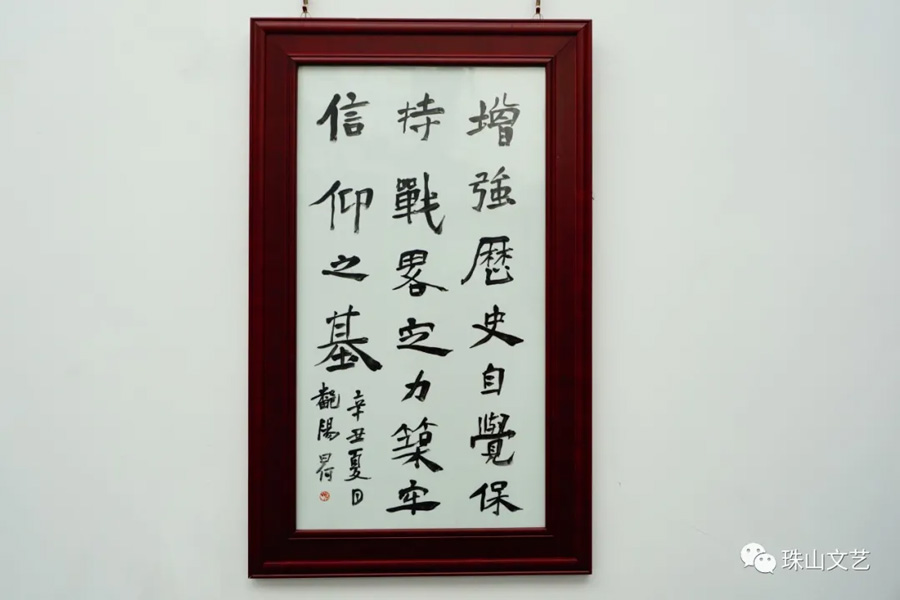 增強歷史自覺保
持戰畧定力築牢
信仰之基
辛丑夏日
珠山文艺